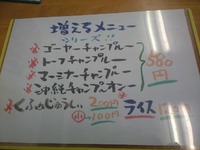 増えるメニュー
シリーズ!!
ゴーヤーチャンプルー
トーフチャンプルー
マーミナーチャンプルー
沖縄チャンプオン
580円
くふぁじゅうしぃ
200円
小 100円
ライス